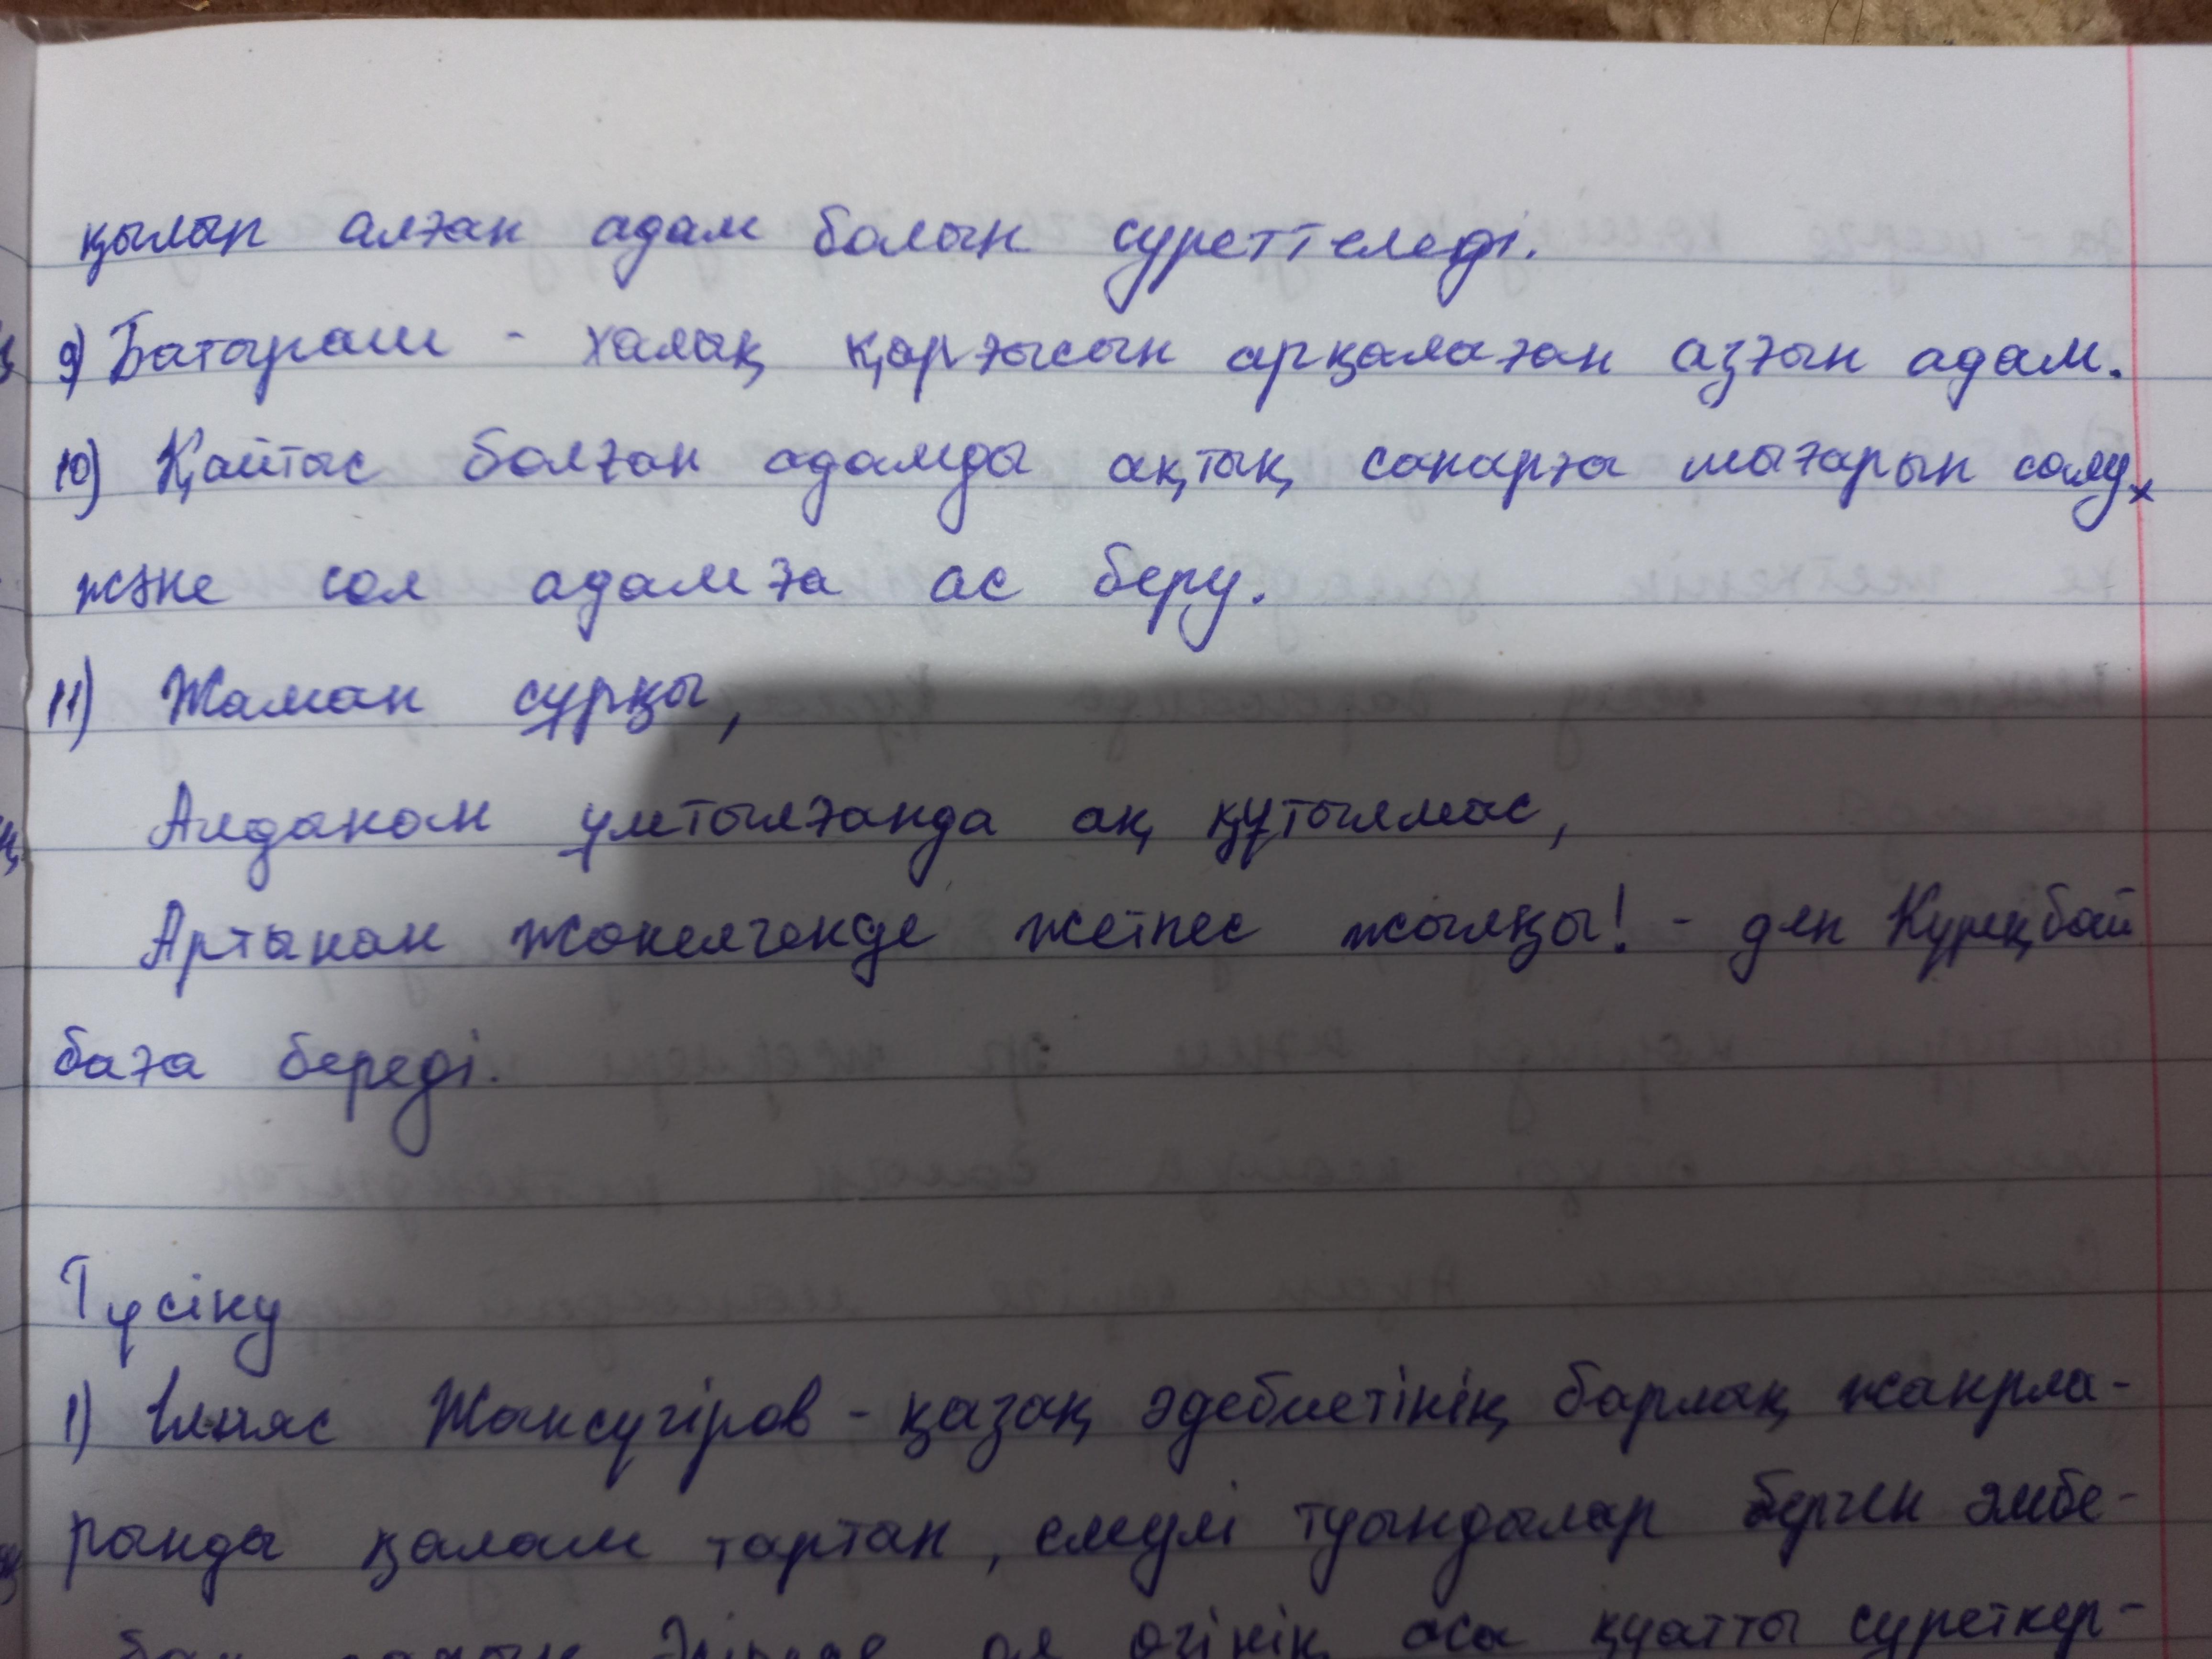 қылып алған адам болып суреттеледі.
9) Батыраш - халық қарғысын арқалаған азғын адам.
10) Қайтыс болған адамды ақтық сапарға шығарып салу,
және сол адамға ас беру.
11) Жаман сұрқы,
Алдынан ұмтылғанда аң құтылмас,
Артынан жөнелгенде жетпес жылқы! - деп Күреңбай
баға береді.
Түсіну
1) Ілияс Жансүгіров - қазақ әдебиетінің барлық жанрла-
рында қалам тартып, сүмүлі туындылар берген әмбе-
бап ақын. Әсіресе ол өзінің аса қуатты суреткер-